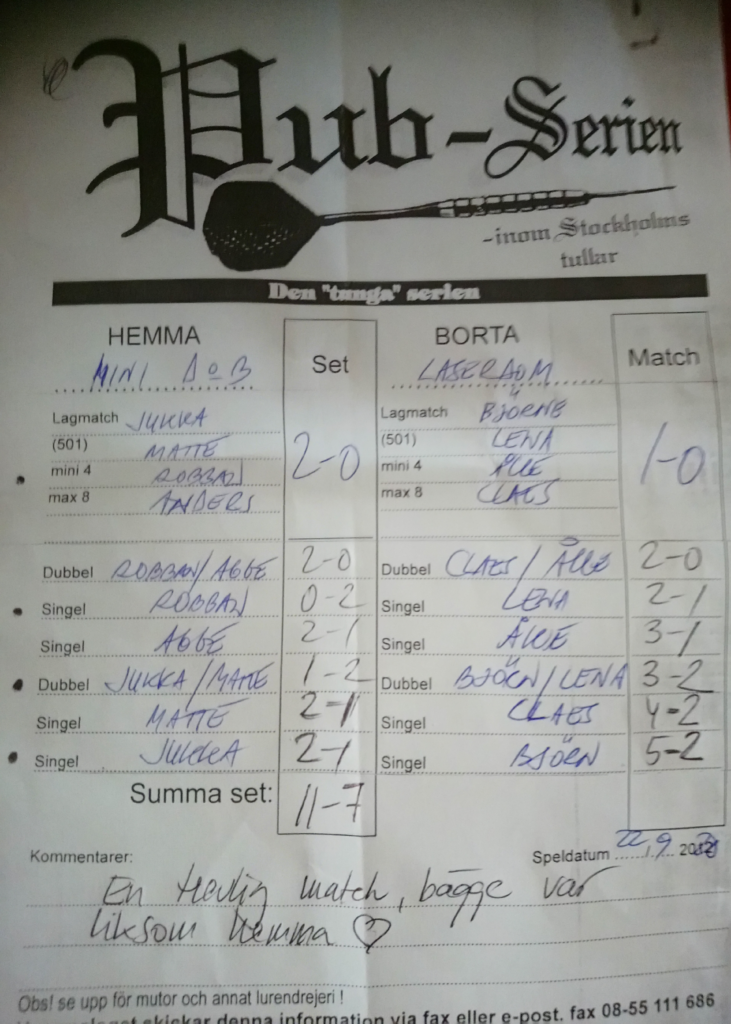 Pub-Serien
-inom Stockholms
tullar
Den "tunga" serien
HEMMA Set BORTA Match
MINI DoB LASERDOM
Lagmatch JUKKA 2-0 Lagmatch BJÖRNE 1-0
(501) MATTE (501) LENA
mini 4 ROBBAN mini 4 ÅKE
max 8 ANDERS max 8 CLAES
Dubbel ROBBAN/AGGE 2-0 Dubbel CLAES/ 2-0
Singel ROBBAN 0-2 Singel LENA 2-1
Singel AGGE 2-1 Singel 3-1
Dubbel JUKKA/MATTE 1-2 Dubbel BJÖRN/LENA 3-2
Singel MATTE 2-1 Singel CLAES 4-2
Singel JUKKA 2-1 Singel BJÖRN 5-2
Summa set: 11-7
Kommentarer: Speldatum 22,9
En trevlig match, bägge var
liksom hemma ♡
Obs! se upp för mutor och annat lurendrejeri !
skickar denna information via fax eller e-post. fax 08-55 111 686